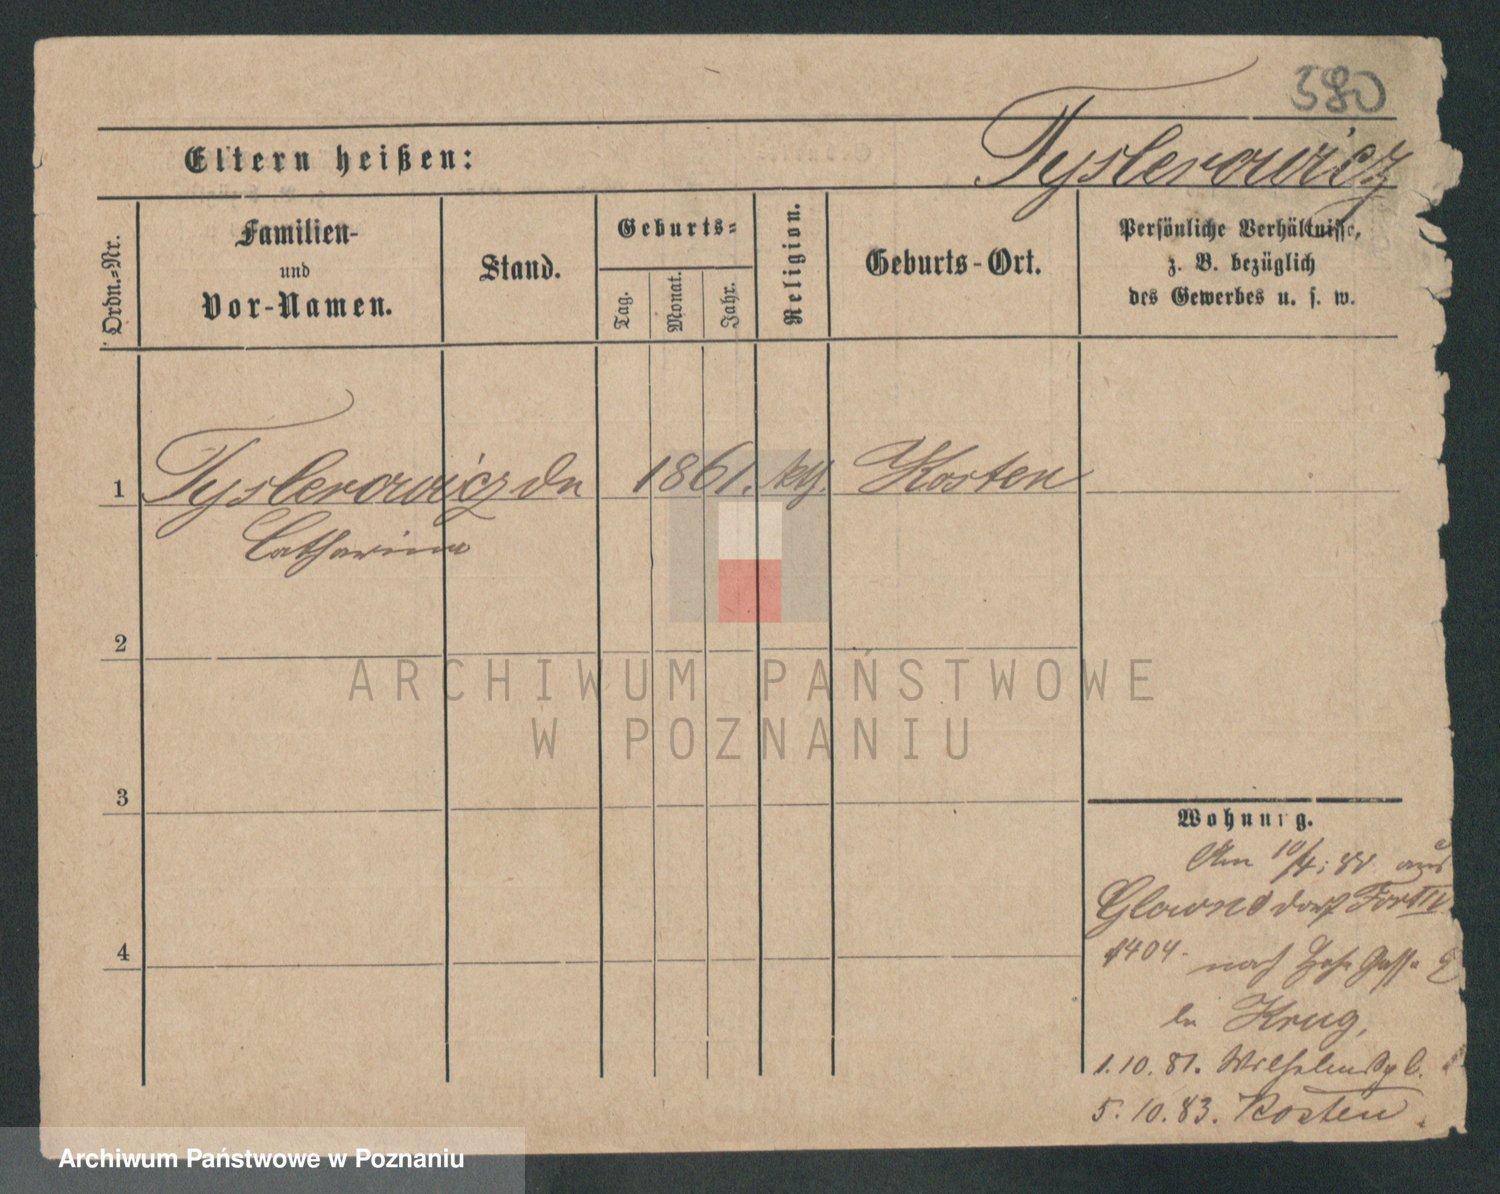 580
Eltern heißen:
Tyslerowicz
Ordn.=Nr.
Familien-
und
Vor-Namen.
Stand.
Geburts=
Tag.
Monat.
Jahr.
Religion.
Geburts-Ort.
Persönliche Verhältnisse,
z. B. bezüglich
des Gewerbes u. s. w.
1
Tyslerowicz
1861.
Kosten
Catharina
2
3
4
Wohnung.
Am 10/4. aus
dorf Fort IV
1404. nach
Krug,
1.10.81.
5.10.83. Kosten
ARCHIWUM PAŃSTWOWE
W POZNANIU
Archiwum Państwowe w Poznaniu